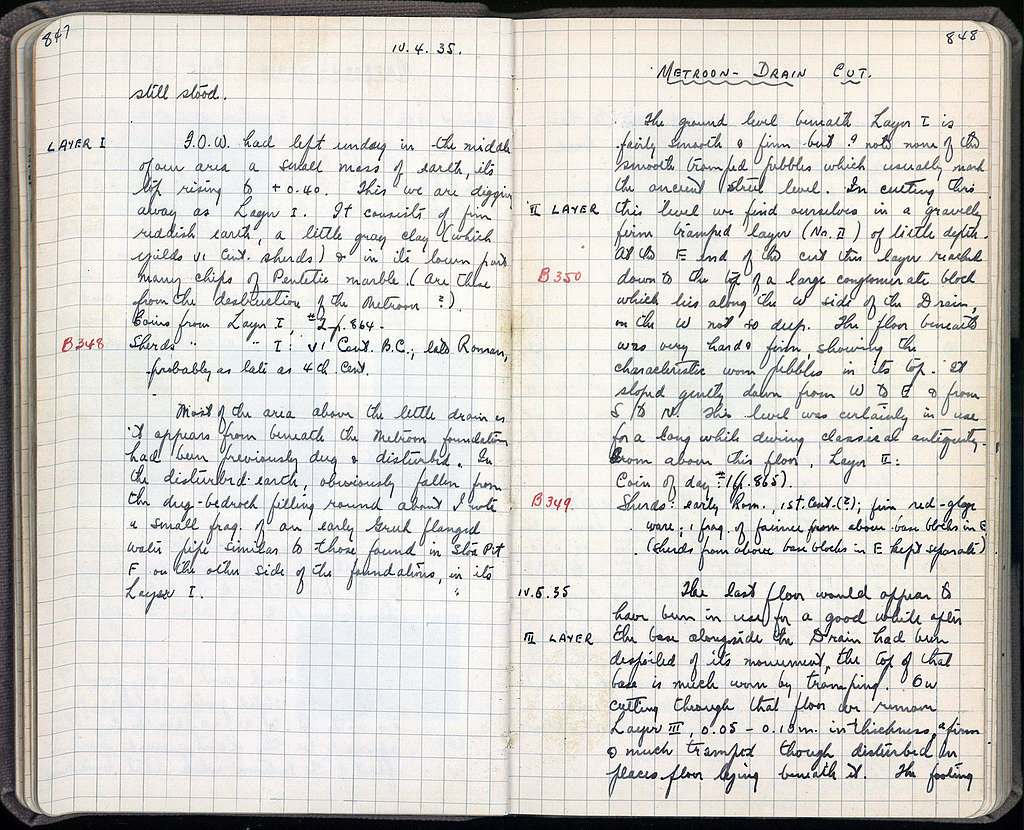 847
IV. 4. 35.
still stood.
LAYER I
F.O.W. had left undug in the middle
of our area a small mass of earth, its
top rising to + 0.40. This we are digging
away as Layer I. It consists of firm
reddish earth, a little gray clay (which
yields VI Cent. sherds) & in its lower part
many chips of Pentelic marble. (Are these
from the destruction of the Metroon ?)
Coins from Layer I, #2 - p. 864 -
B348
Sherds " " I : VI Cent. B.C., late Roman,
probably as late as 4th Cent.
Most of the area above the little drain as
it appears from beneath the Metroon foundations
had been previously dug & disturbed. In
the disturbed earth, obviously fallen from
the dug-bedrock filling round about I note
a small frag. of an early Greek flanged
water pipe similar to those found in Sloa Pit
F on the other side of the foundations, in its
Layer I.
848
METROON - DRAIN CUT.
The ground level beneath Layer I is
fairly smooth & firm but I note none of the
smooth tramped pebbles which usually mark
the ancient street level. In cutting thro
II LAYER
this level we find ourselves in a gravelly
firm tramped layer (No. II) of little depth.
At the E end of the cut this layer reached
B350
down to the top of a large conglomerate block
which lies along the W side of the Drain,
on the W not so deep. The floor beneath
was very hard & firm, showing the
characteristic worn pebbles in its top. It
sloped gently down from W to E & from
S to N. This level was certainly in use
for a long while during classical antiquity.
From above this floor, Layer II:
Coin of day: #1 (p. 865).
B349
Sherds: early Rom., 1st Cent. (?); fine red-glaze
ware; 1 frag. of faience from above base blocks in E
(sherds from above base blocks in E kept separate)
IV. 5. 35
The last floor would appear to
have been in use for a good while after
III LAYER
the base alongside the Drain had been
despoiled of its monument, the top of that
base is much worn by tramping. On
cutting through that floor we remove
Layer III, 0.05 - 0.15 m. in thickness, a firm
& much tramped though disturbed in
places floor lying beneath it. The footing